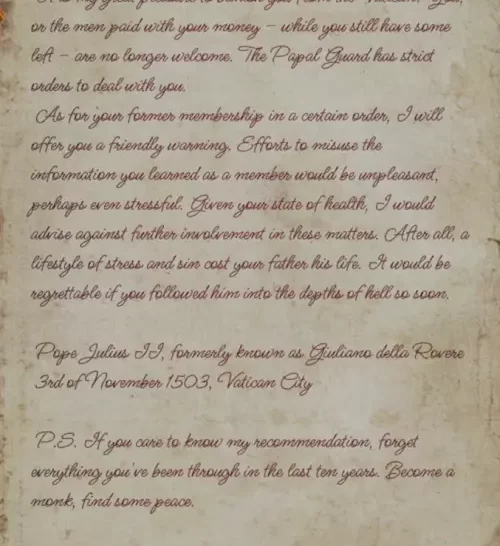 or the men paid with your money – while you still have some
left – are no longer welcome. The Papal Guard has strict
orders to deal with you.
As for your former membership in a certain order, I will
offer you a friendly warning. Efforts to misuse the
information you learned as a member would be unpleasant,
perhaps even stressful. Given your state of health, I would
advise against further involvement in these matters. After all, a
lifestyle of stress and sin cost your father his life. It would be
regrettable if you followed him into the depths of hell so soon.
Pope Julius II, formerly known as Giuliano della Rovere
3rd of November 1503, Vatican City
P.S. If you care to know my recommendation, forget
everything you've been through in the last ten years. Become a
monk, find some peace.